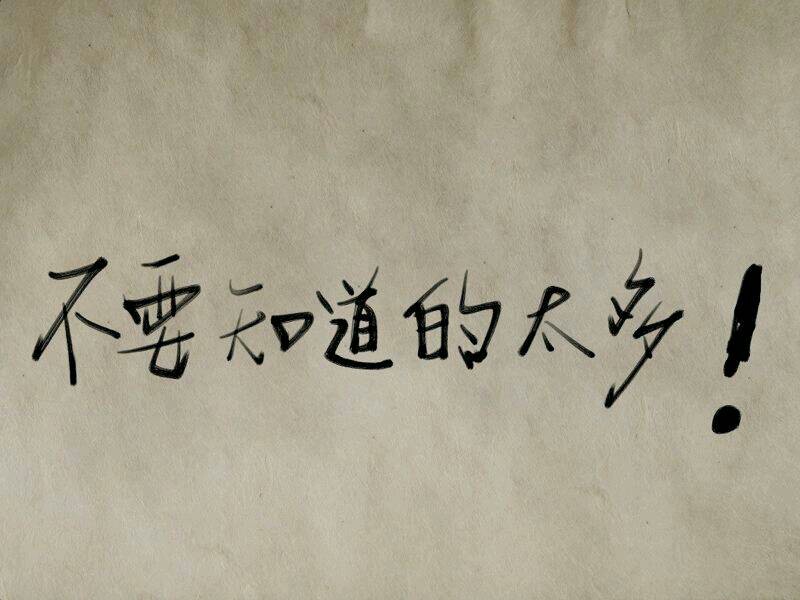 不要知道的太多！